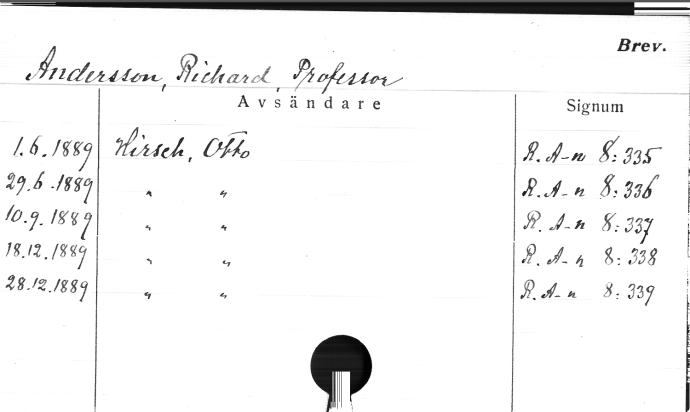 Brev.
Andersson, Richard, Professor
Avsändare Signum
1.6.1889 Hirsch, Otto R. A-n 8:335
29.6.1889 " " R. A-n 8:336
10.9.1889 " " R. A-n 8:337
18.12.1889 " " R. A-n 8:338
28.12.1889 " " R. A-n 8:339